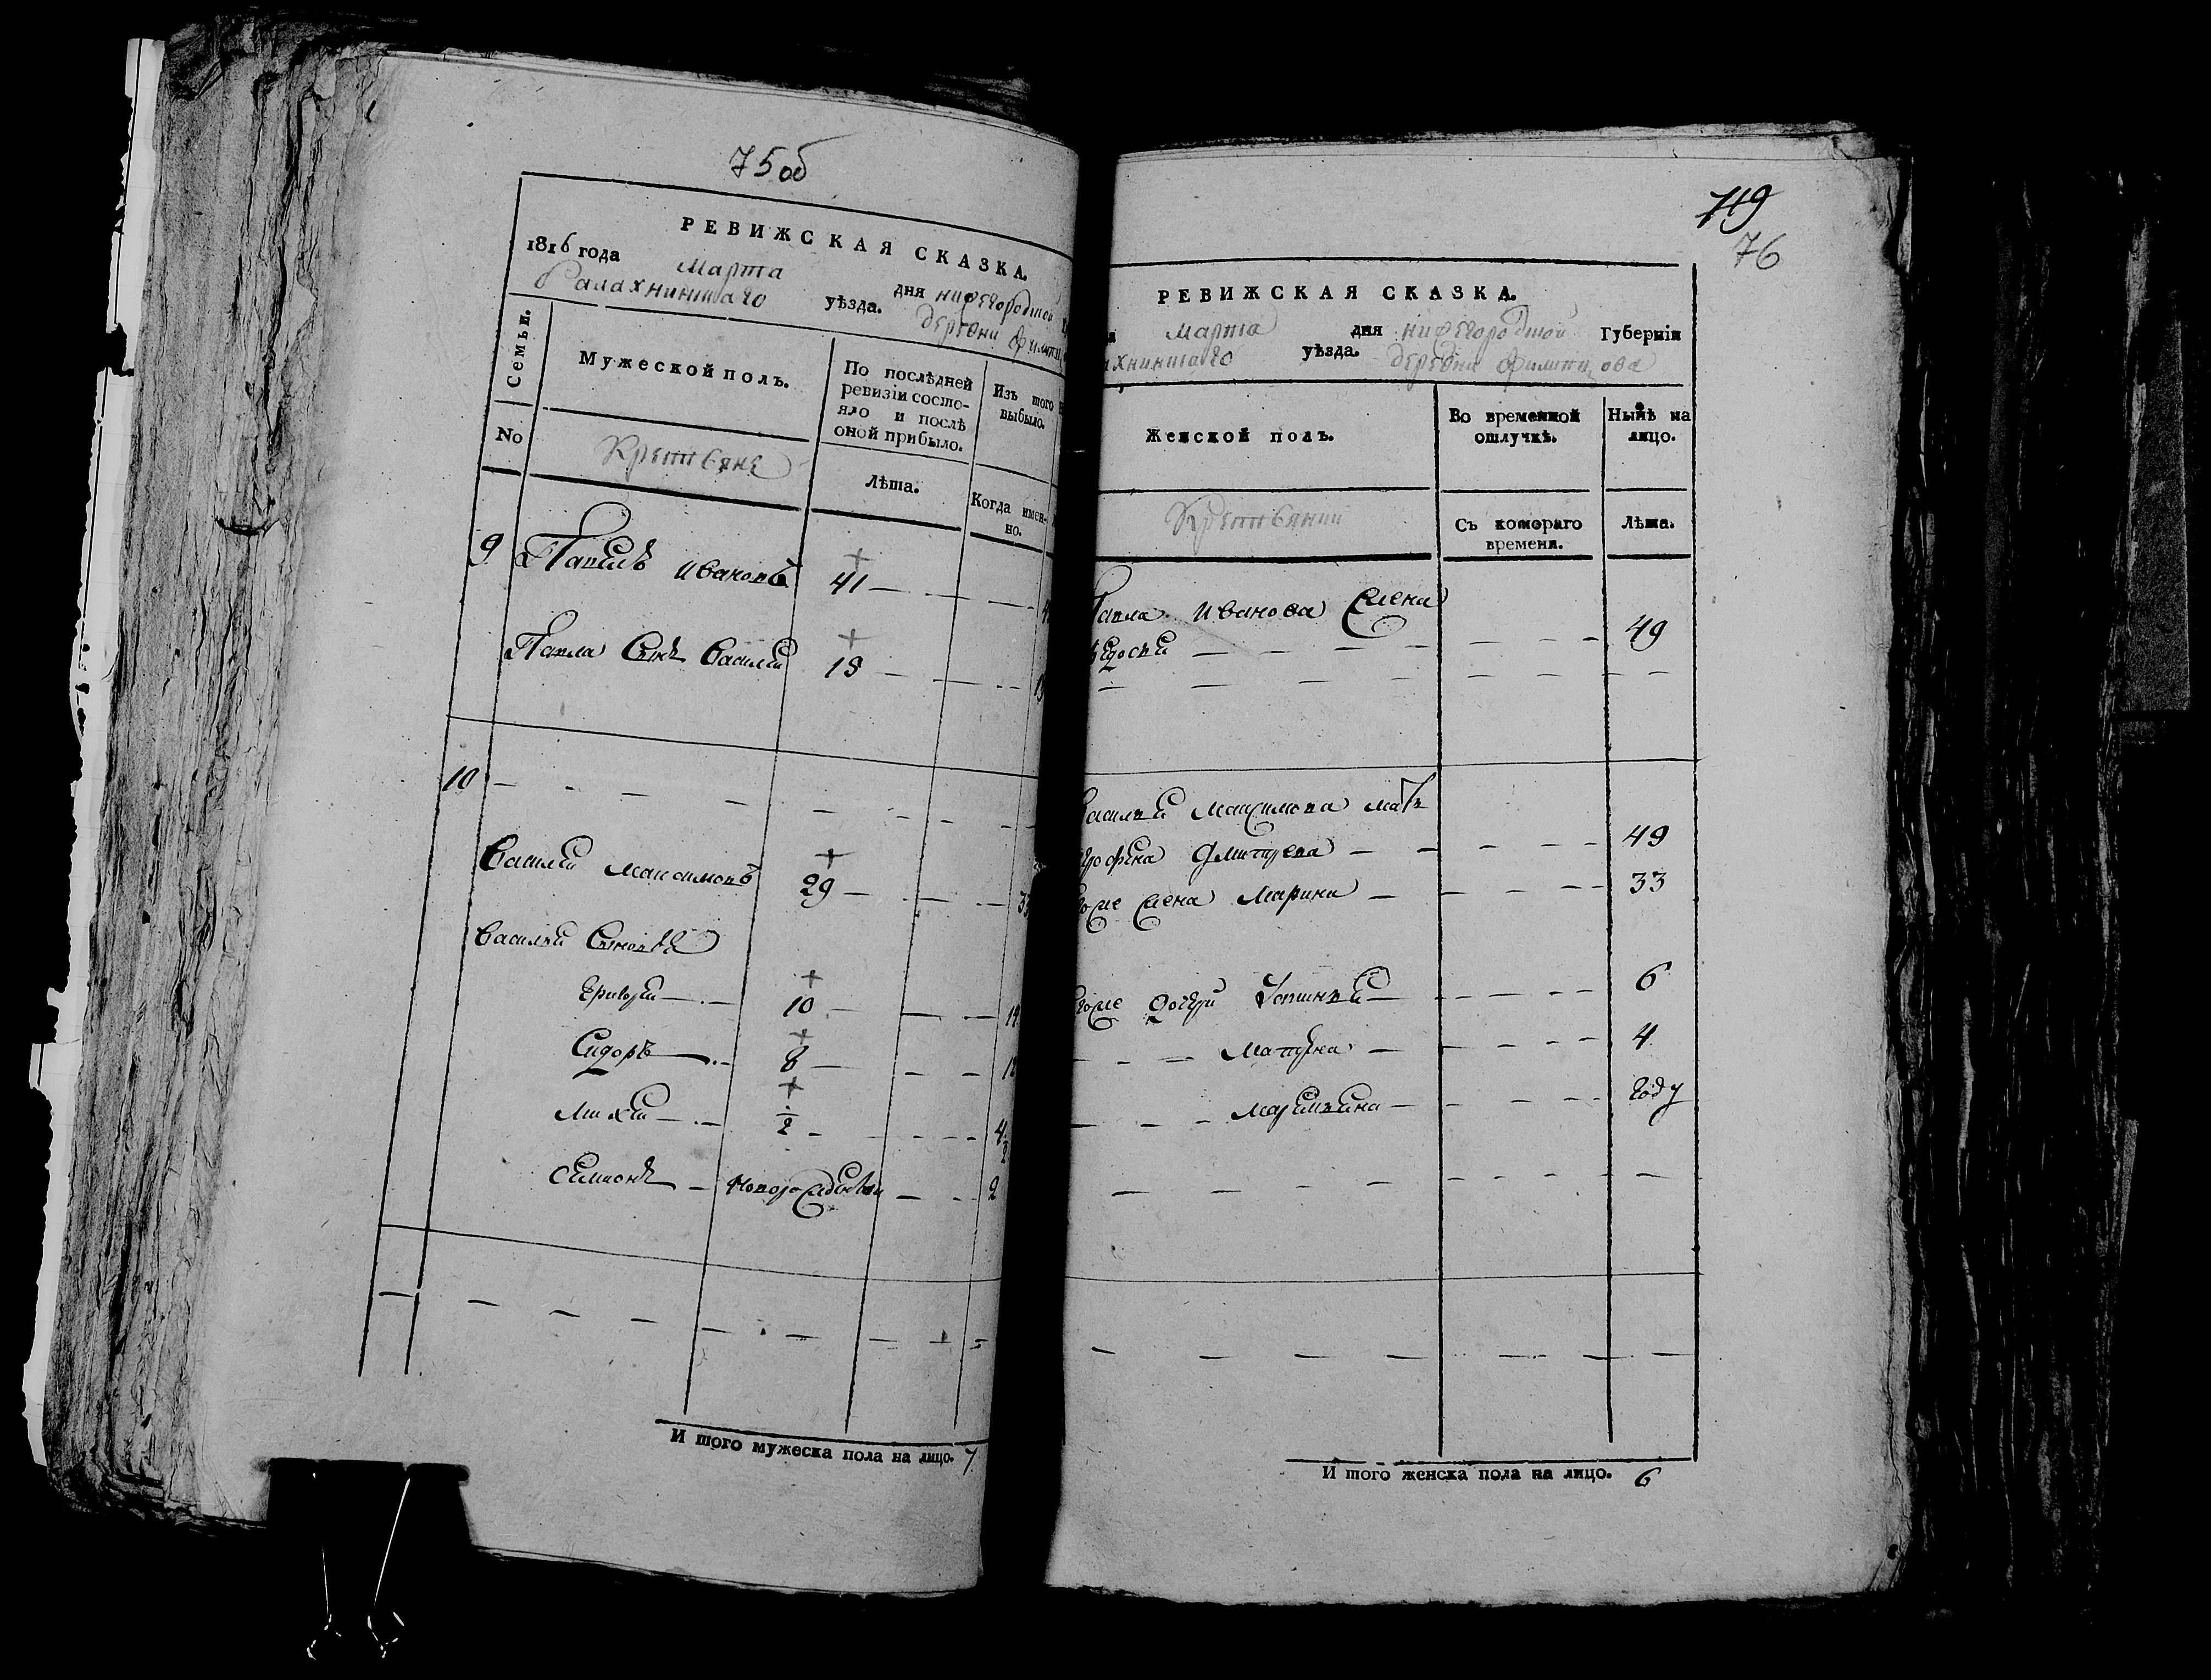 75 об
РЕВИЖСКАЯ СКАЗКА.
1816 года Марта дня нижегородской
Балахнинскаго уѣзда. деревни Филипц
Семьи.
Мужеской полъ.
По послѣдней
ревизіи состо-
яло и послѣ
оной прибыло.
Изъ того
выбыло.
No
Крестьяне
Лѣта.
Когда имен-
но.
9 Павелъ Ивановъ 41
Павла Сынъ Василей
10
Василей Максимовъ 29 33
Васильи Сыновья
Григорей 10 14
Сидоръ 8 12
Михей ½ 4½
Симионъ Новорожденной 2
И того мужеска пола на лицо. 7
719
76
РЕВИЖСКАЯ СКАЗКА.
Марта дня нижегородской Губерніи
ахнинскаго уѣзда. деревни Филипцова
Женской полъ.
Во временной
отлучкѣ.
Нынѣ на
лицо.
Крестьянки
Съ котораго
времени.
Лѣта.
Павла Иванова жена
Федосья 49
Василья Максимова мать
Дмитрева 49
жена Марина 33
дочери Устинья 6
Матрена 4
году
И того женска пола на лицо. 6